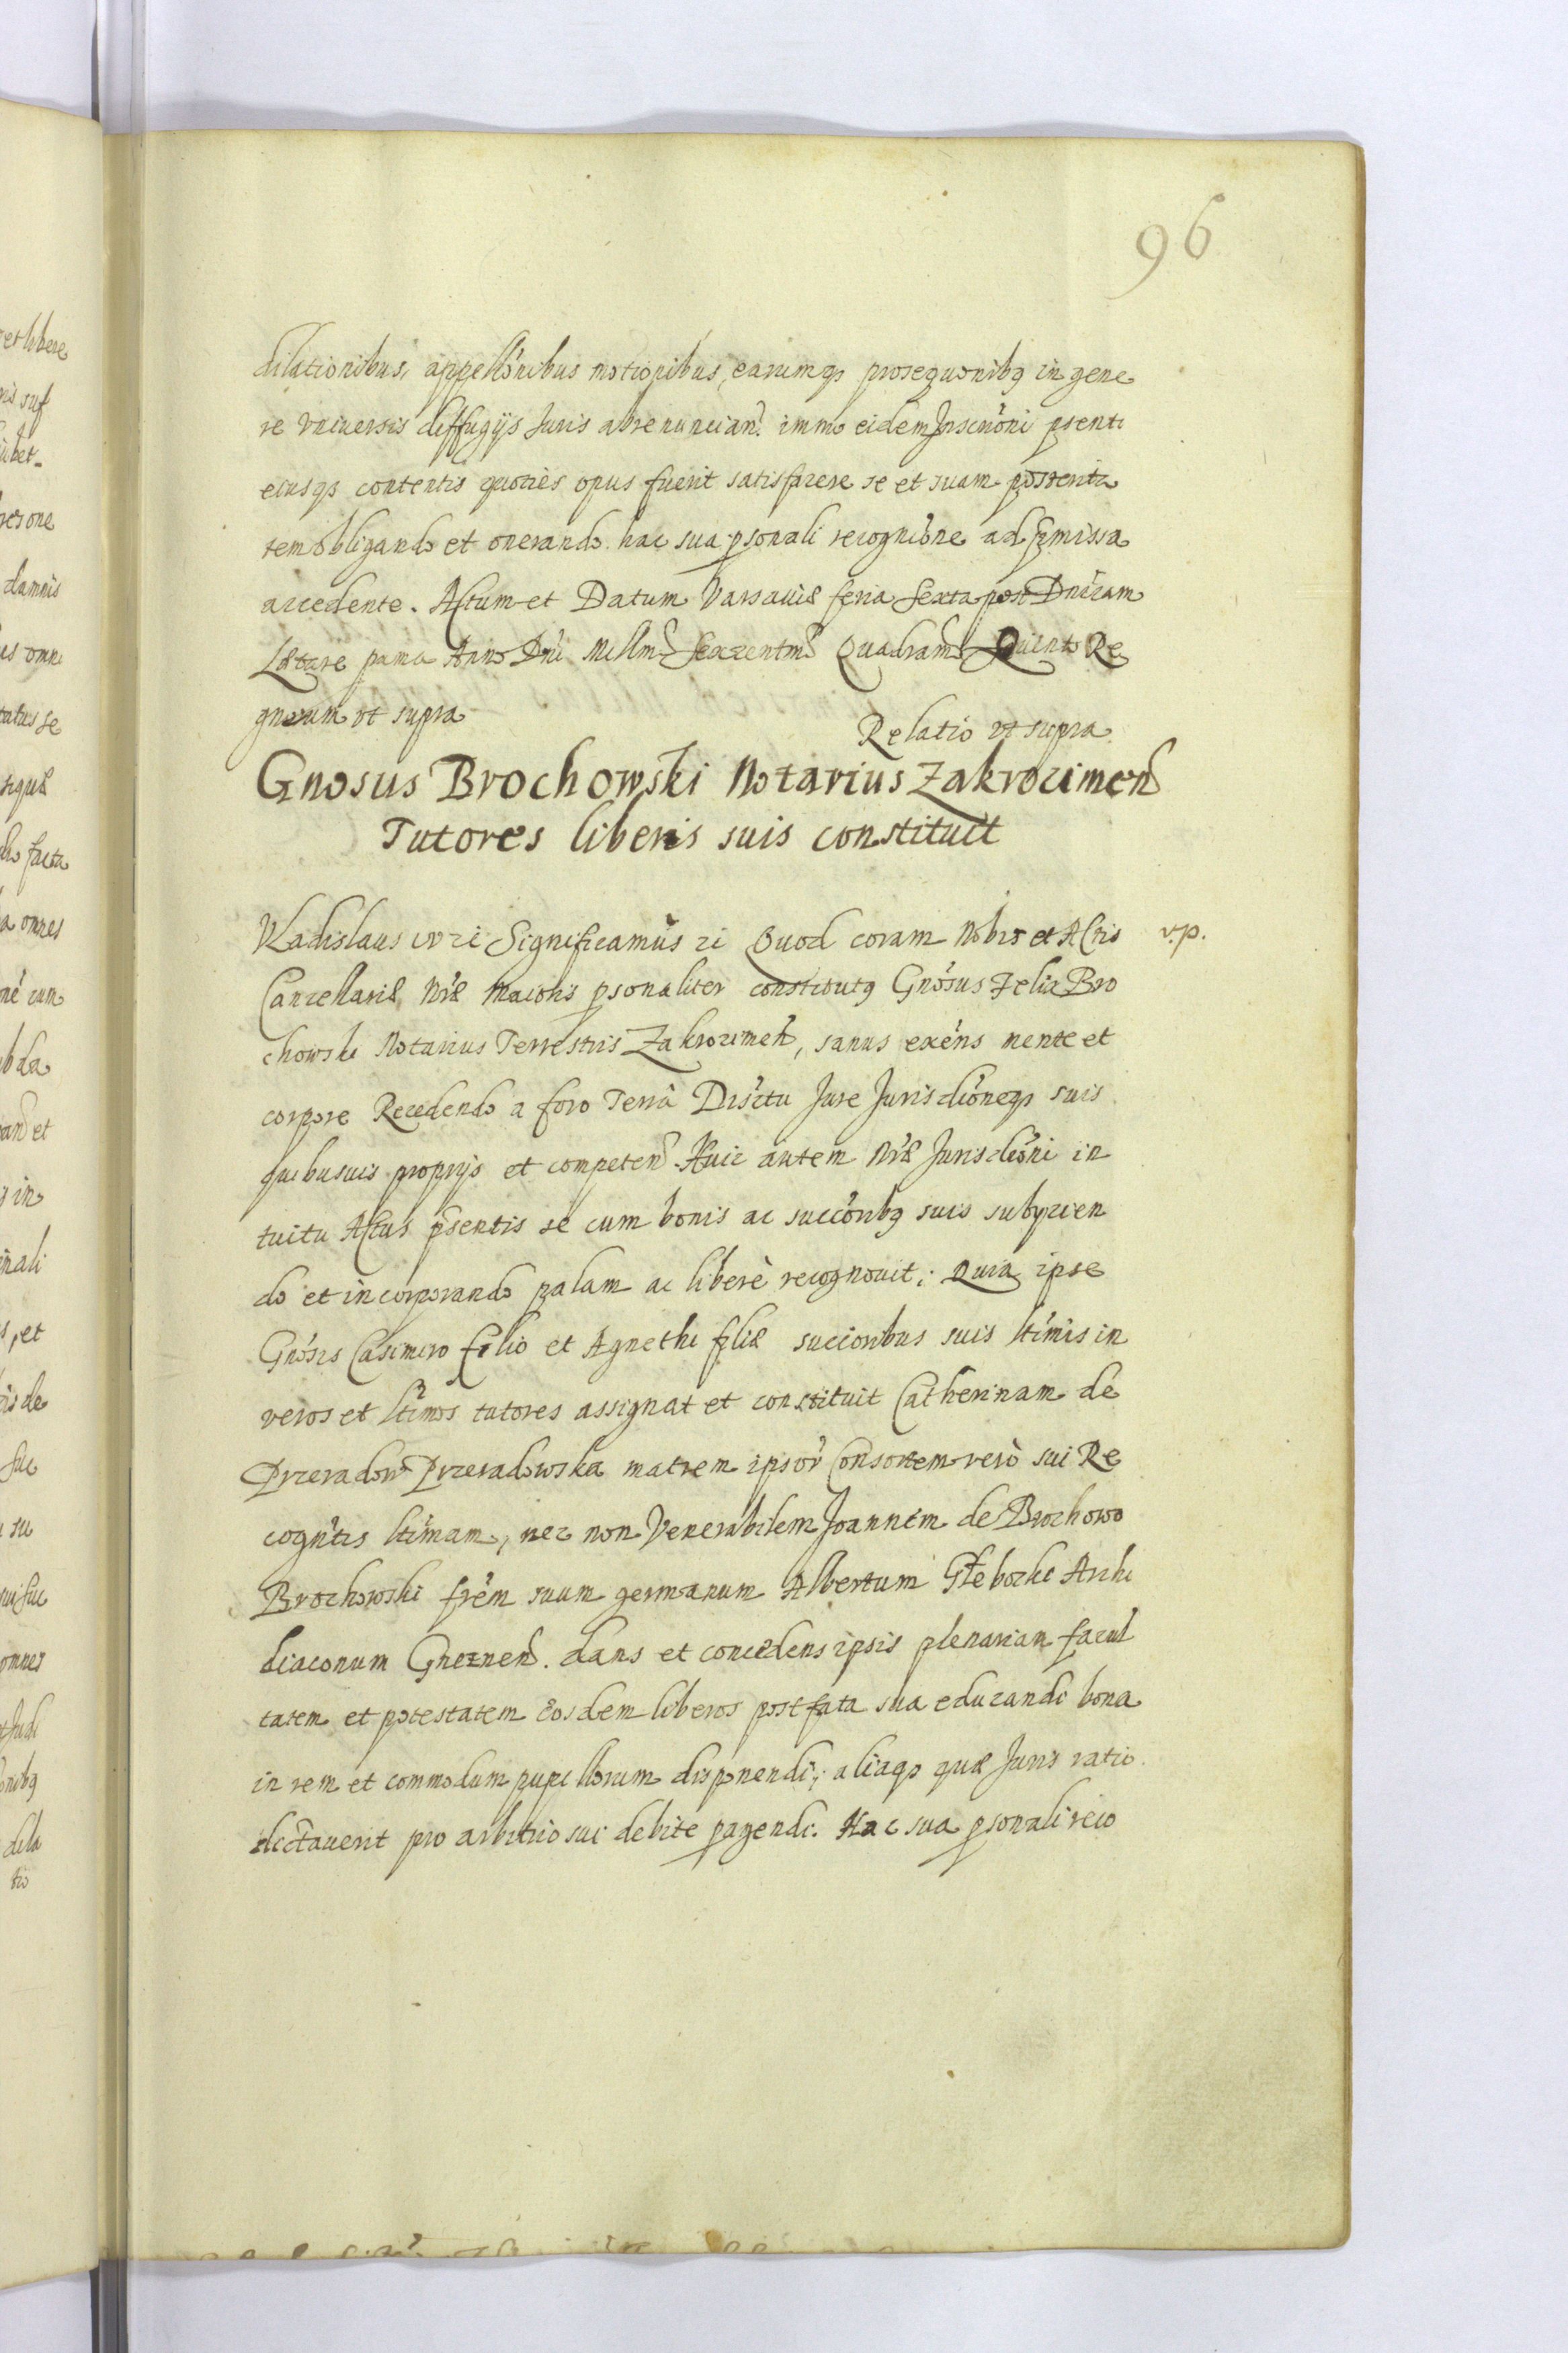 96
dilationibus, appellõnibus motionibus, earumqꝫ prosequonibꝫ in gene
re vniuersis diffugijs Juris abrenuncian̄. immo eidem Inscrip̃oni p̃senti
eiusqꝫ contentis quoties opus fuerit satisfacere se et suam posterita
tem obligando et onerando. hac sua p̱sonali recognic̃one ad p̃missa
accedente. Actum et Datum Varsauiæ feria sexta post Dnĩcam
Lætare pãma Anno Dnĩ Millm̃o Sexcentm̃o Quadram̃o Quinto Re
gnorum vt supra
Relatio vt supra
Gnosus Brochowski Notarius Zakrocimen̄
Tutores liberis suis constituit
Vladislaus IV zc Significamus zc Quod coram Nobis et Actis
v.p.
Cancellariæ Nr̃æ Maioris p̱sonaliter constitutꝫ Gnõsus Felix Bro
chowski Notarius Terrestris Zakrocimen̄, sanus exẽns mente et
corpore Recedendo a foro Terrã Districtu Jure Jurisdic̃oneqꝫ suis
quibusuis proprijs et competen̄. Huic autem Nr̃æ Jurisdic̃oni in
tuitu Actus p̃sentis se cum bonis ac succõribꝫ suis subijcien
do et incorporando palam ac liberè recognouit; Quia ipse
Gnõsis Casimiro filio et Agnethi filiæ succioribus suis ltĩmis in
veros et ltĩmos tutores assignat et constituit Catherinam de
Przeradowo Przeradowska matrem ipsor̃ Consortem verò sui Re
cognñtis ltĩmam, nec non Venerabilem Joannem de Brochowo
Brochowski frẽm suum germanum Albertum Głebocki Archi
diaconum Gneznen̄. dans et concedens ipsis plenariam facul
tatem et potestatem eosdem liberos post fata sua educandi bona
in rem et commodum pupillorum disponendi; aliaqꝫ quæ Juris ratio
dictauerit pro arbitrio sui debite p̱agendi. Hac sua p̱sonali reco